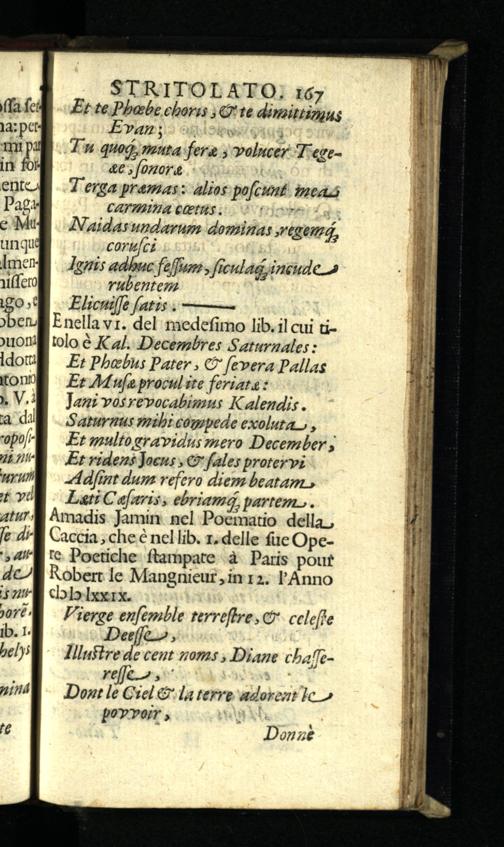 ossa ser-
na: per-
mi par
in for-
ente
Paga-
e Mu-
unque
almen-
nissero
ago, e
bben
buona
ddotta
ntonio
b. V. à
ta dal
roposi-
ni nu-
turum
et vel
atur,
se di-
, au-
de
is nu-
horē.
ib. I.
helys
mina
te
STRITOLATO. 167
Et te Phœbe choris, & te dimittimus
Evan;
Tu quoq; muta feræ, volucer Tege-
æe, sonoræ
Terga præmas: alios poscunt mea
carmina cœtus.
Naidas undarum dominas, regemq;
corusci
Ignis adhuc fessum, siculaq; incude
rubentem
Elicuisse satis. ———
E nella VI. del medesimo lib. il cui ti-
tolo è Kal. Decembres Saturnales:
Et Phœbus Pater, & severa Pallas
Et Musæ procul ite feriatæ:
Jani vos revocabimus Kalendis.
Saturnus mihi compede exoluta,
Et multo gravidus mero December,
Et ridens Jocus, & sales protervi
Adsint dum refero diem beatam
Læti Cæsaris, ebriamq; partem.
Amadis Jamin nel Poematio della
Caccia, che è nel lib. I. delle sue Ope-
re Poetiche stampate à Paris pour
Robert le Mangnieur, in 12. l'Anno
cIↄ Iↄ lxxIx.
Vierge ensemble terrestre, & celeste
Deesse,
Illustre de cent noms, Diane chasse-
resse,
Dont le Ciel & la terre adorent le
povvoir,
Donnè